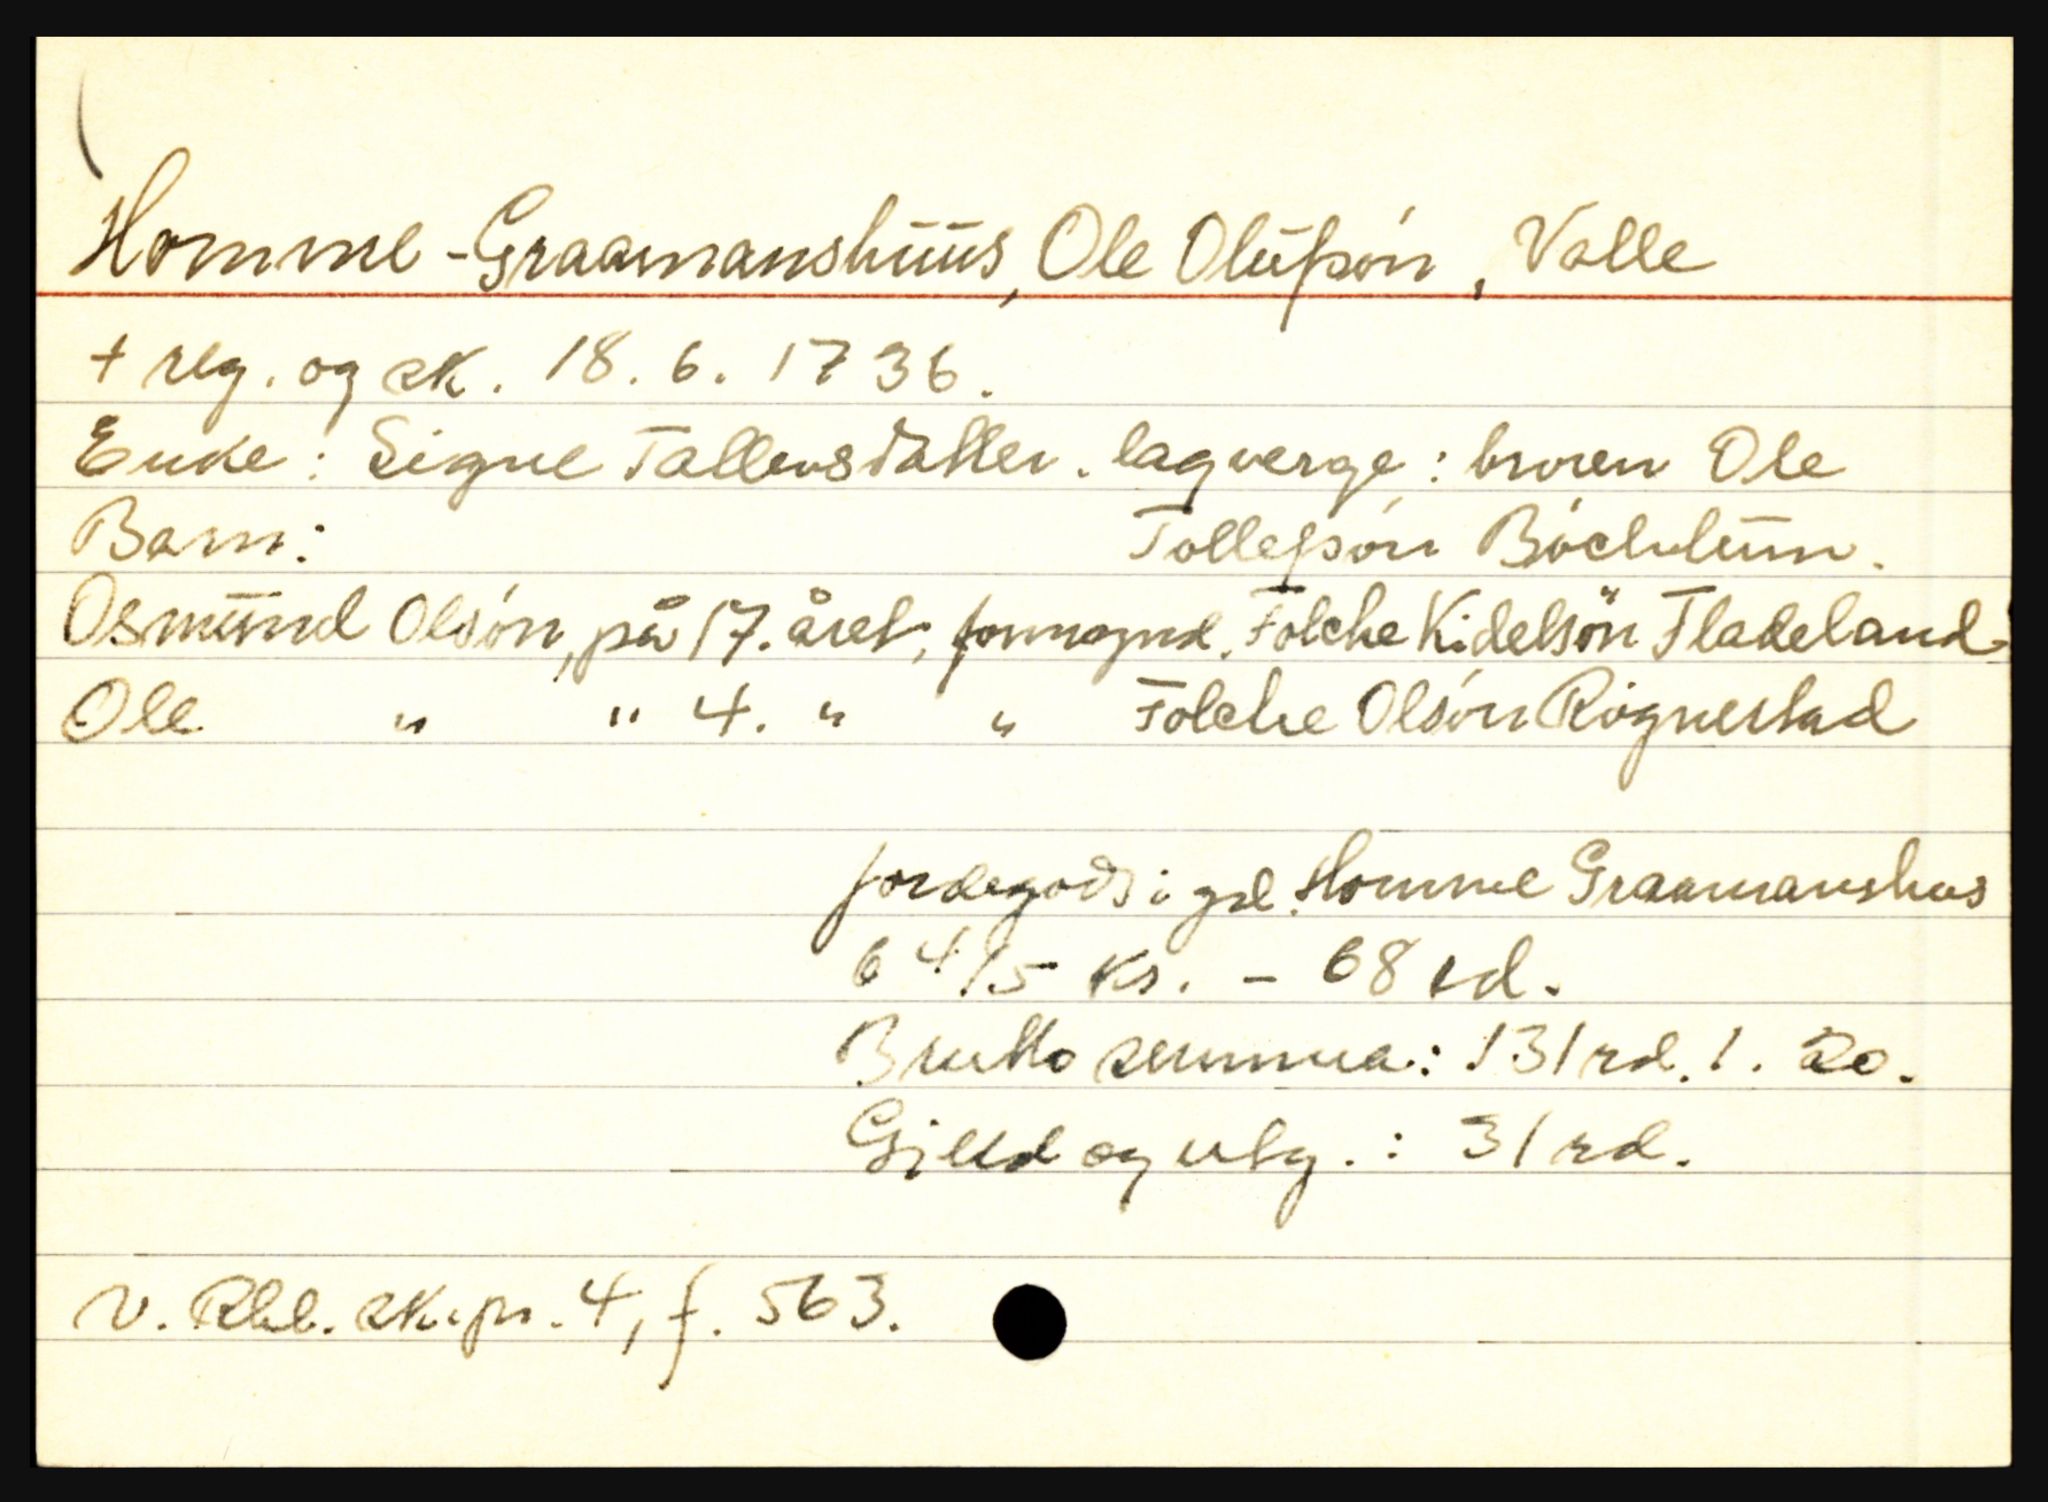 Homme - Graamanshuus, Ole Olufsón, Valle
+ reg. og sk. 18. 6. 1736.
Enke: Signe Tallevsdatter. lagverge: broren Ole
Barn: Tollefsón Bóchlum.
Osmund Olsón, på 17. året, formynd. Folche Kidelsön Fladeland
Ole " " 4. " " Folche Olsón Rógnestad
Jordegods i grd. Homme Graamanshus
6 4/5 ks. - 68 rd.
Brutto summa: 131 rd. 1. 20.
Gjeld og utg.: 31 rd.
V. Rbl. sk.pr. 4, f. 563.